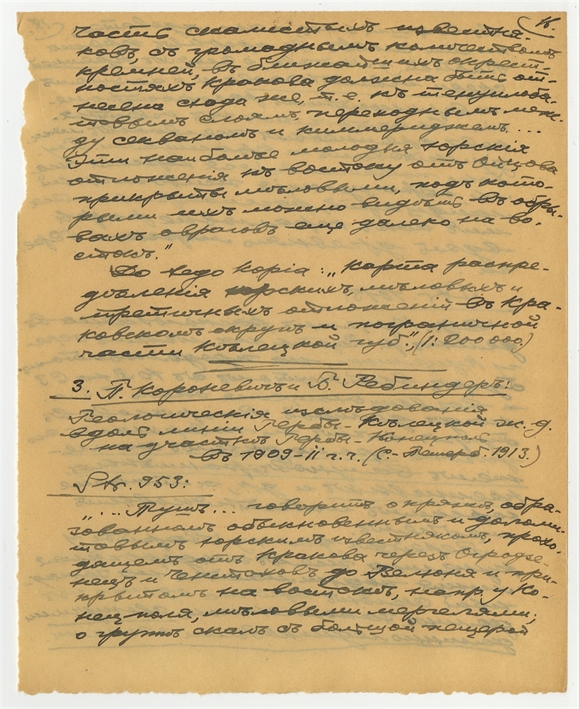 16.
часть скалистыхъ известня-
ковъ, съ громаднымъ количествомъ
кремней, въ ближайшихъ окрест-
ностяхъ Кракова должна быть от-
несена сюда же, т. е. къ тенуилоба-
товымъ слоямъ, переходнымъ меж-
ду секваномъ и киммериджемъ...
Эти наиболѣе молодыя юрскія
отложенія къ востоку отъ Ойцова
прикрыты мѣловыми, подъ кото-
рыми ихъ можно видѣть въ обры-
вахъ овраговъ еще далеко на во-
стокъ."
До \ чего корiа: „Карта распре-
дѣленія юрскихъ, мѣловыхъ и
третичныхъ отложеній въ Кра-
ковскомъ округѣ и пограничной
части Кѣлецкой губ." (1:200 000)
3. П. Короневичъ и Б. Ребиндеръ:
Геологическія изслѣдованія
вдоль линіи Гербы-Кѣлецкой ж. д.
на участкѣ Гербы-Конецполь
въ 1909-11 г.г. (С.-Петерб. 1913.)
Str. 953:
„... Пушъ... говоритъ о кряжѣ, обра-
зованномъ обыкновеннымъ и доломи-
товымъ юрскимъ известнякомъ, прохо-
дящемъ отъ Кракова черезъ Огродзе-
нецъ и Ченстоховъ до Велюня и при-
крытомъ на востокѣ, напр. у Ко-
нецполя, мѣловыми мергелями;
о группѣ скалъ съ большой пещерой